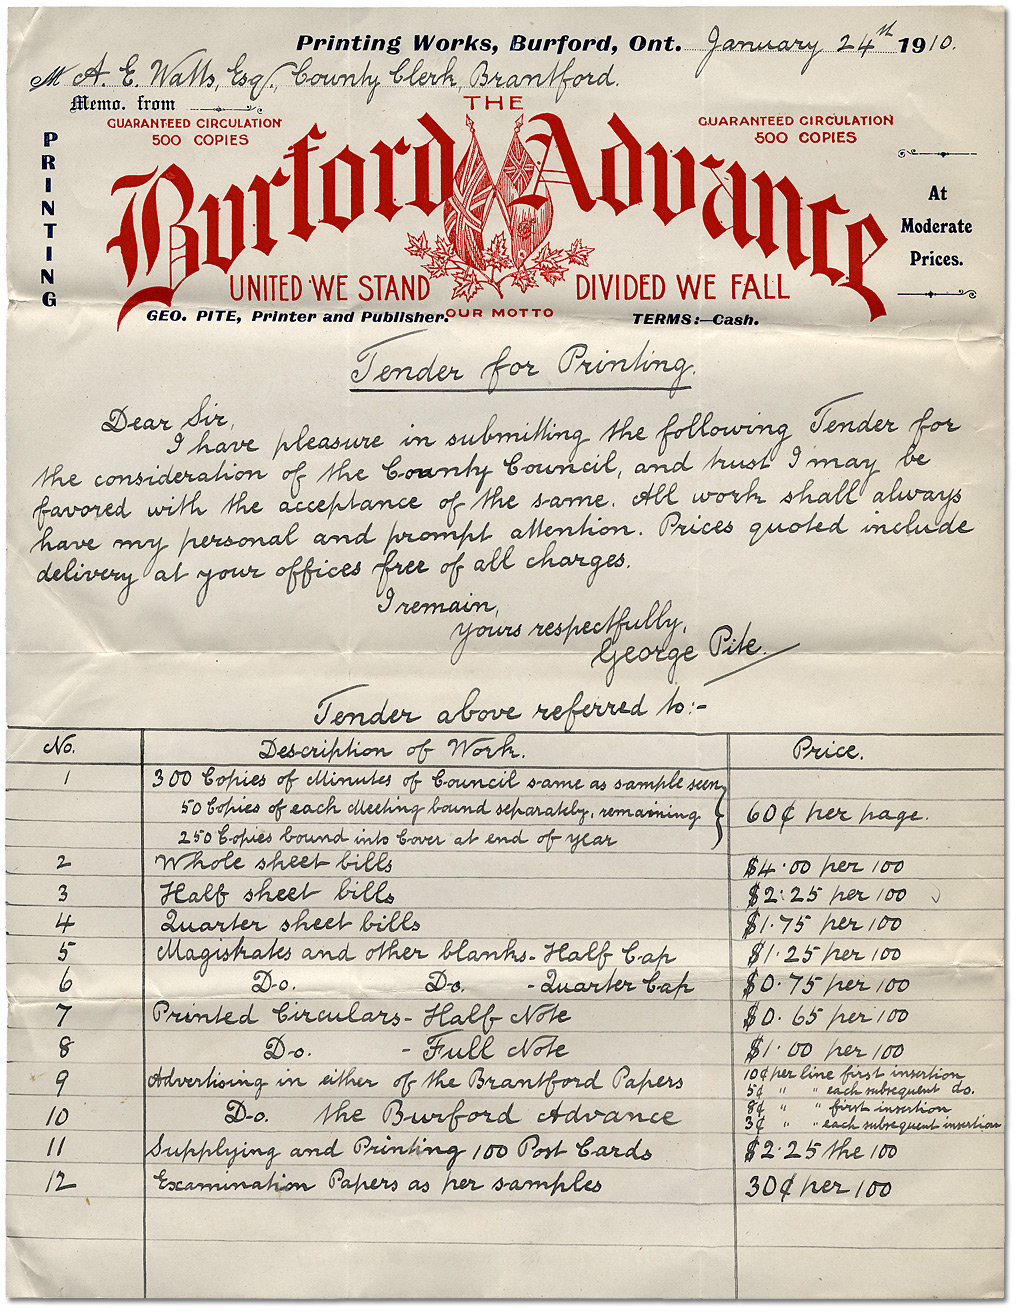 Printing Works, Burford, Ont. January 24th 1910.
M A. E. Watts, Esq., County Clerk, Brantford.
Memo. from
THE
GUARANTEED CIRCULATION
500 COPIES
GUARANTEED CIRCULATION
500 COPIES
PRINTING
Burford Advance
At
Moderate
Prices.
UNITED WE STAND DIVIDED WE FALL
GEO. PITE, Printer and Publisher. OUR MOTTO TERMS:—Cash.
Tender for Printing.
Dear Sir,
I have pleasure in submitting the following Tender for
the consideration of the County Council, and trust I may be
favored with the acceptance of the same. All work shall always
have my personal and prompt attention. Prices quoted include
delivery at your offices free of all charges.
I remain,
Yours respectfully,
George Pite.
Tender above referred to:-
No. Description of Work. Price.
1 300 Copies of Minutes of Council same as sample seen
50 Copies of each Meeting bound separately, remaining 60¢ per page.
250 Copies bound into Cover at end of year
2 Whole sheet bills $4.00 per 100
3 Half sheet bills $2.25 per 100
4 Quarter sheet bills $1.75 per 100
5 Magistrates and other blanks - Half Cap $1.25 per 100
6 Do. Do. - Quarter Cap $0.75 per 100
7 Printed Circulars - Half Note $0.65 per 100
8 Do. - Full Note $1.00 per 100
9 Advertising in either of the Brantford Papers 10¢ per line first insertion
5¢ " " each subsequent do.
10 Do. the Burford Advance 8¢ " " first insertion
3¢ " " each subsequent insertion
11 Supplying and Printing 100 Post Cards $2.25 the 100
12 Examination Papers as per samples 30¢ per 100